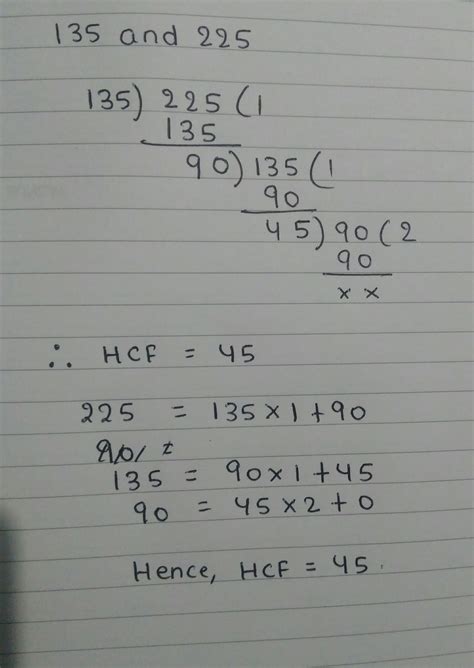 135 and 225
135) 225 (1
135
90) 135 (1
90
45) 90 (2
90
x x
∴ HCF = 45
225 = 135 × 1 + 90
135 = 90 × 1 + 45
90 = 45 × 2 + 0
Hence, HCF = 45.